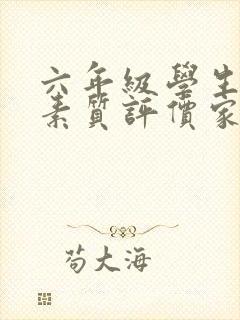 六年級學生
素質評價家
苟大海